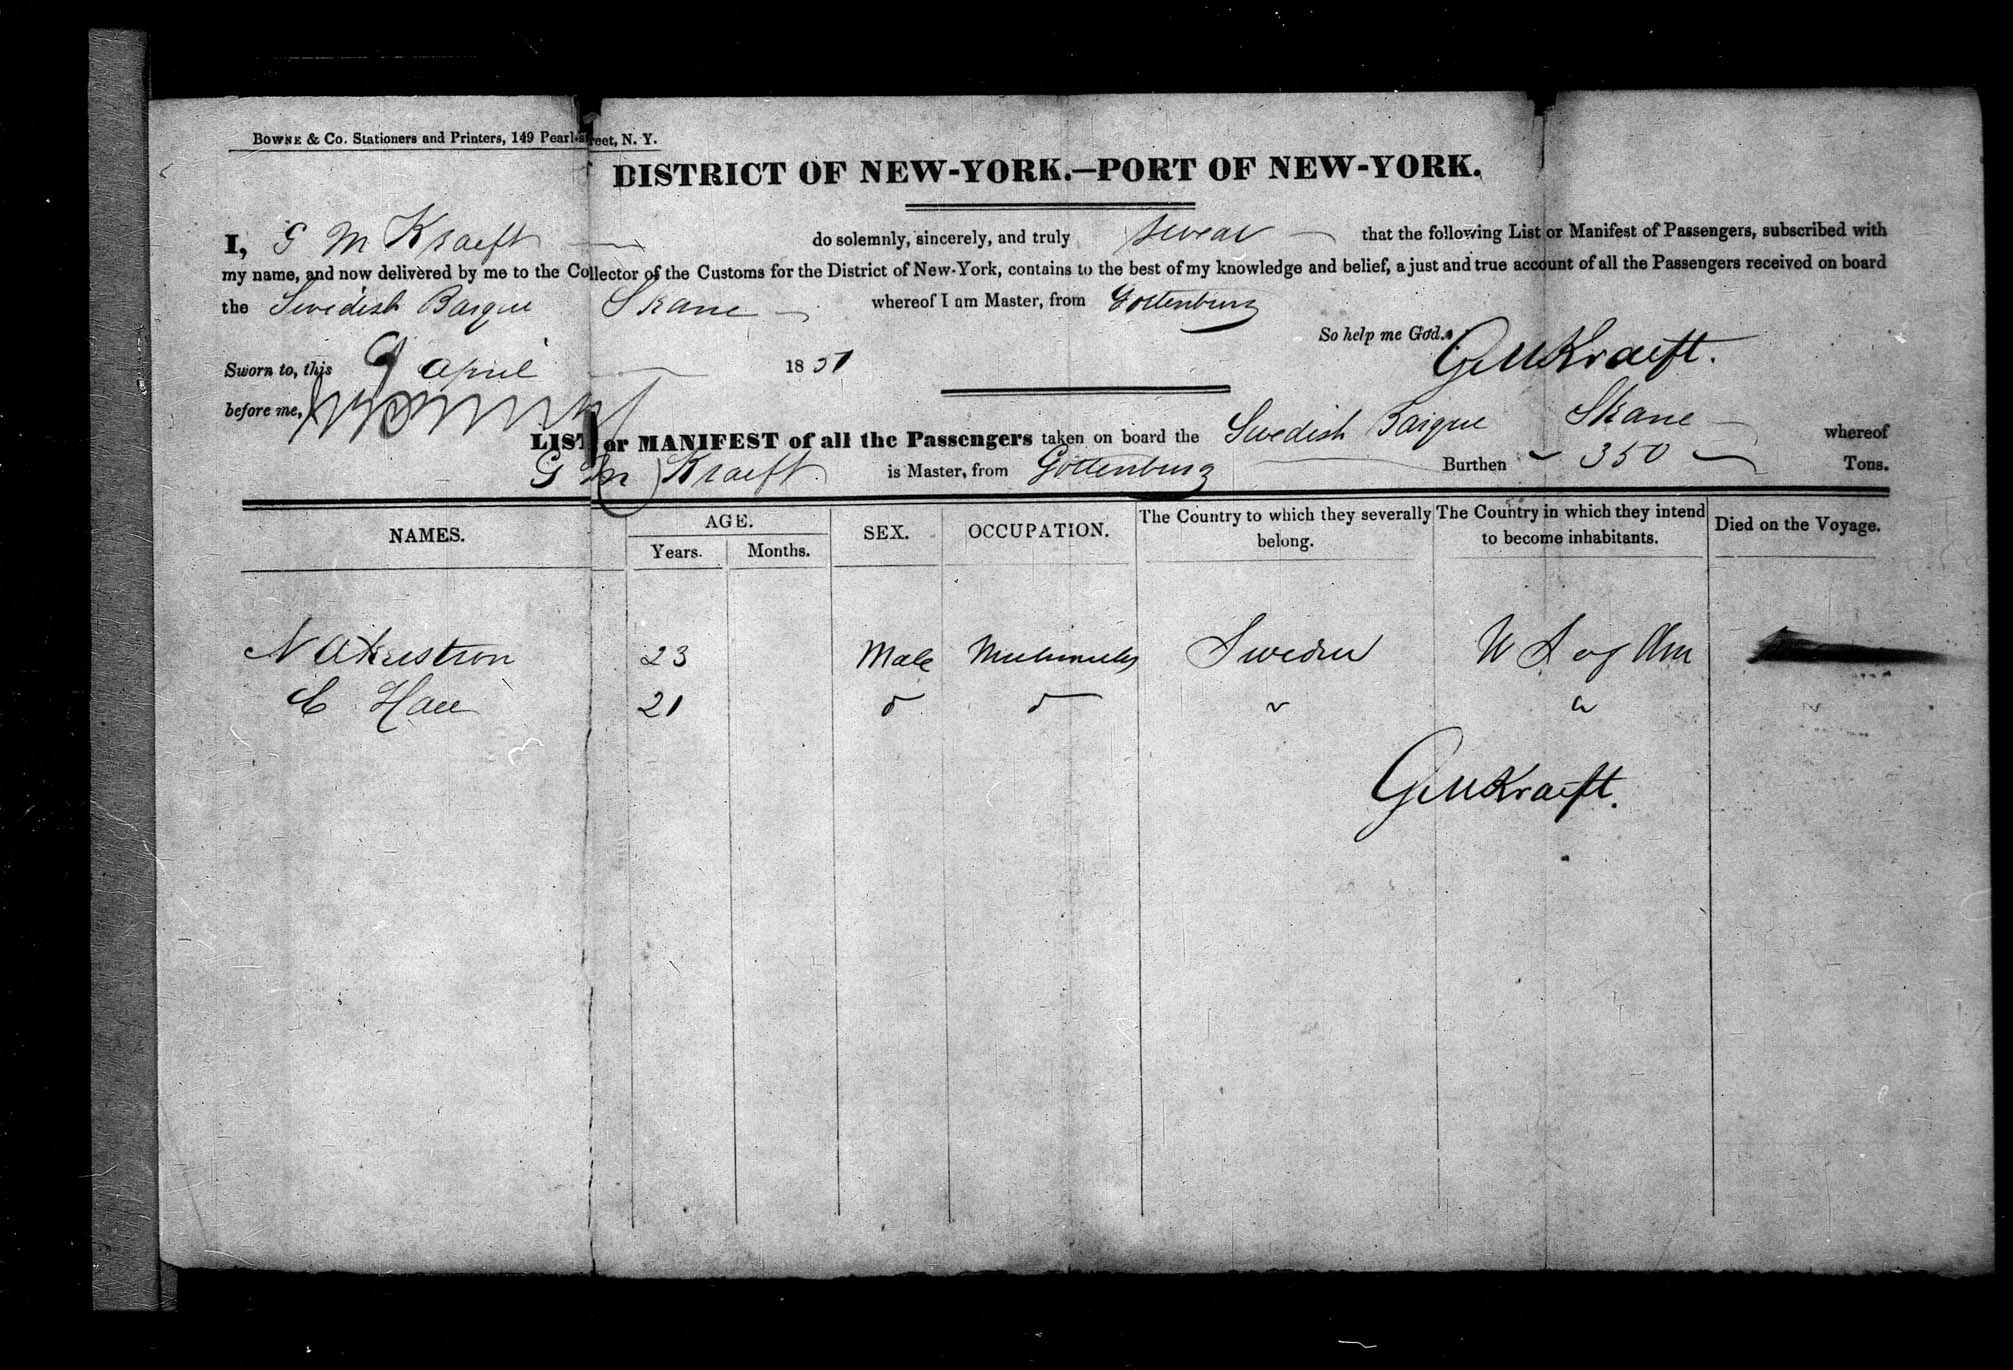 BOWNE & Co. Stationers and Printers, 149 Pearl-street, N. Y.
DISTRICT OF NEW-YORK.—PORT OF NEW-YORK.
I, G M Kraeft do solemnly, sincerely, and truly swear that the following List or Manifest of Passengers, subscribed with
my name, and now delivered by me to the Collector of the Customs for the District of New-York, contains to the best of my knowledge and belief, a just and true account of all the Passengers received on board
the Swedish Barque Skane whereof I am Master, from Gottenburg
So help me God.
Sworn to, this 9 April 1851 GMKraeft.
before me,
LIST or MANIFEST of all the Passengers taken on board the Swedish Barque Skane whereof
G M Kraeft is Master, from Gottenburg Burthen 350 Tons.
NAMES. AGE. SEX. OCCUPATION. The Country to which they severally belong. The Country in which they intend to become inhabitants. Died on the Voyage.
Years. Months.
N 23 Male Sweden U S of Am
C 21
GMKraeft.